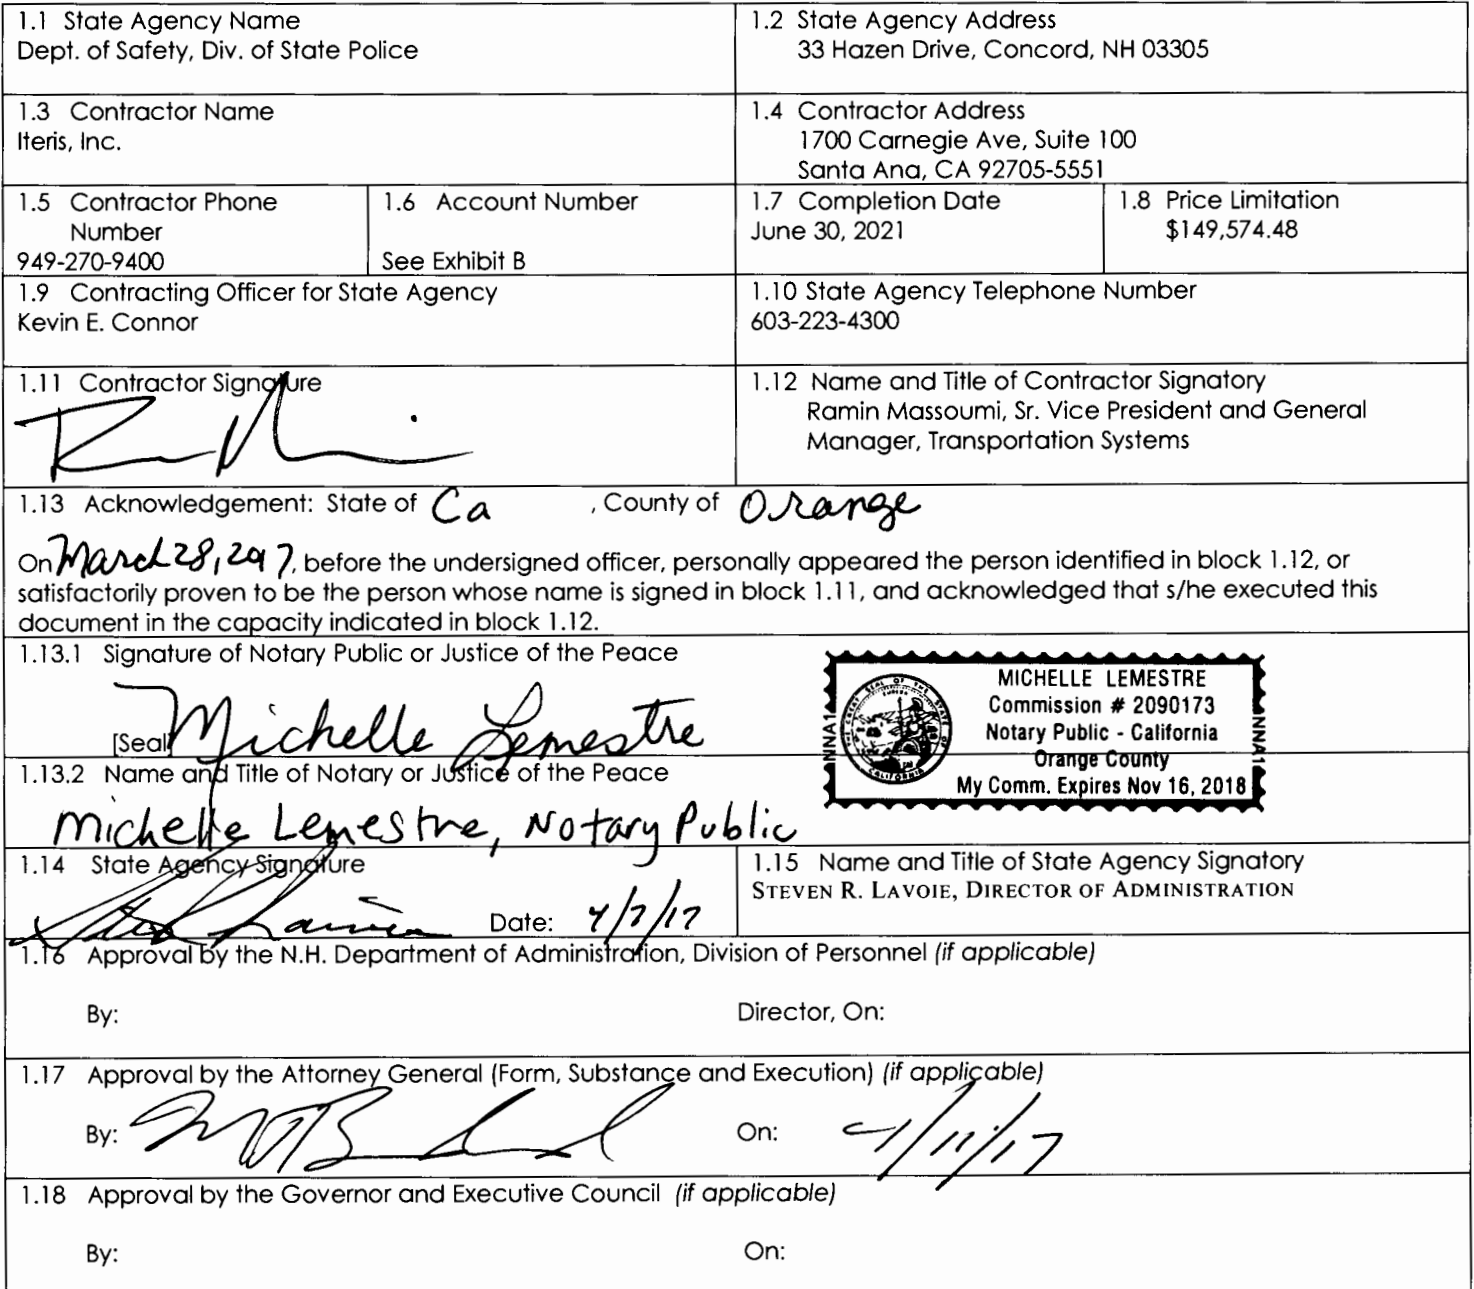 1.1 State Agency Name
Dept. of Safety, Div. of State Police
1.2 State Agency Address
33 Hazen Drive, Concord, NH 03305
1.3 Contractor Name
Iteris, Inc.
1.4 Contractor Address
1700 Carnegie Ave, Suite 100
Santa Ana, CA 92705-5551
1.5 Contractor Phone
Number
949-270-9400
1.6 Account Number
See Exhibit B
1.7 Completion Date
June 30, 2021
1.8 Price Limitation
$149,574.48
1.9 Contracting Officer for State Agency
Kevin E. Connor
1.10 State Agency Telephone Number
603-223-4300
1.11 Contractor Signature
1.12 Name and Title of Contractor Signatory
Ramin Massoumi, Sr. Vice President and General
Manager, Transportation Systems
1.13 Acknowledgement: State of Ca , County of Orange
On March 28, 2017, before the undersigned officer, personally appeared the person identified in block 1.12, or
satisfactorily proven to be the person whose name is signed in block 1.11, and acknowledged that s/he executed this
document in the capacity indicated in block 1.12.
1.13.1 Signature of Notary Public or Justice of the Peace
[Seal] Michelle Lemestre
MICHELLE LEMESTRE
Commission # 2090173
Notary Public - California
Orange County
My Comm. Expires Nov 16, 2018
1.13.2 Name and Title of Notary or Justice of the Peace
Michelle Lemestre, Notary Public
1.14 State Agency Signature
Date: 4/7/17
1.15 Name and Title of State Agency Signatory
STEVEN R. LAVOIE, DIRECTOR OF ADMINISTRATION
1.16 Approval by the N.H. Department of Administration, Division of Personnel (if applicable)
By: Director, On:
1.17 Approval by the Attorney General (Form, Substance and Execution) (if applicable)
By: On: 4/11/17
1.18 Approval by the Governor and Executive Council (if applicable)
By: On: